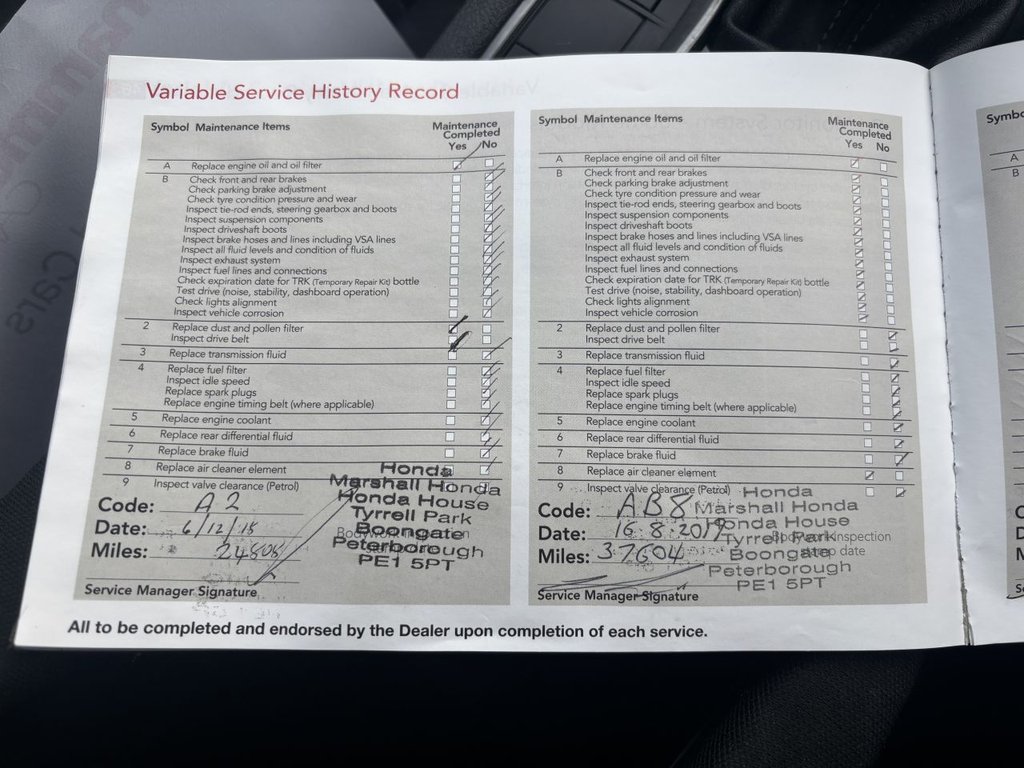 Variable Service History Record
Symbol Maintenance Items
Maintenance
Completed
Yes No
A Replace engine oil and oil filter
B Check front and rear brakes
Check parking brake adjustment
Check tyre condition pressure and wear
Inspect tie-rod ends, steering gearbox and boots
Inspect suspension components
Inspect driveshaft boots
Inspect brake hoses and lines including VSA lines
Inspect all fluid levels and condition of fluids
Inspect exhaust system
Inspect fuel lines and connections
Check expiration date for TRK (Temporary Repair Kit) bottle
Test drive (noise, stability, dashboard operation)
Check lights alignment
Inspect vehicle corrosion
2 Replace dust and pollen filter
Inspect drive belt
3 Replace transmission fluid
4 Replace fuel filter
Inspect idle speed
Replace spark plugs
Replace engine timing belt (where applicable)
5 Replace engine coolant
6 Replace rear differential fluid
7 Replace brake fluid
8 Replace air cleaner element
9 Inspect valve clearance (Petrol)
Honda
Marshall Honda
Honda House
Tyrrell Park
Boongate
Peterborough
PE1 5PT
Code: A2
Date: 6/12/18
Miles:
Service Manager Signature
Symbol Maintenance Items
Maintenance
Completed
Yes No
A Replace engine oil and oil filter
B Check front and rear brakes
Check parking brake adjustment
Check tyre condition pressure and wear
Inspect tie-rod ends, steering gearbox and boots
Inspect suspension components
Inspect driveshaft boots
Inspect brake hoses and lines including VSA lines
Inspect all fluid levels and condition of fluids
Inspect exhaust system
Inspect fuel lines and connections
Check expiration date for TRK (Temporary Repair Kit) bottle
Test drive (noise, stability, dashboard operation)
Check lights alignment
Inspect vehicle corrosion
2 Replace dust and pollen filter
Inspect drive belt
3 Replace transmission fluid
4 Replace fuel filter
Inspect idle speed
Replace spark plugs
Replace engine timing belt (where applicable)
5 Replace engine coolant
6 Replace rear differential fluid
7 Replace brake fluid
8 Replace air cleaner element
9 Inspect valve clearance (Petrol)
Honda
Marshall Honda
Honda House
Tyrrell Park
Boongate
Peterborough
PE1 5PT
Code: AB8
Date: 16.8.2019
Miles: 37604
Bodywork inspection
stamp date
Service Manager Signature
All to be completed and endorsed by the Dealer upon completion of each service.
A
B